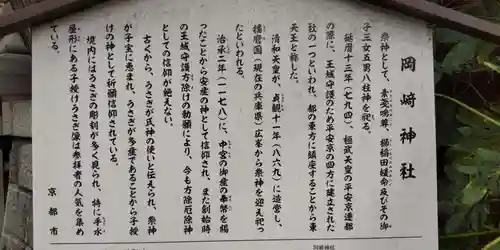 岡﨑神社
祭神として、素戔嗚尊、櫛稲田媛命及びその御
子三女五男八柱神を祀る。
延暦十三年（七九四）、桓武天皇の平安京遷都
の際に、王城守護のため平安京の四方に建立された
社の一つといわれ、都の東方に鎮座することから東
天王と称した。
清和天皇が、貞観十一年（八六九）に造営し、
播磨国（現在の兵庫県）広峯から祭神を迎え祀っ
たといわれる。
治承二年（一一七八）に、中宮の御産の奉幣を賜
ったことから安産の神として信仰され、また創始時
の王城守護方除けの勅願により、今も方除厄除神
としての信仰が絶えない。
古くから、うさぎが氏神の使いと伝えられ、祭神
が子宝に恵まれ、うさぎが多産であることから子授
けの神として祈願信仰されている。
境内にはうさぎの彫刻が多く見られ、特に手水
屋形にある子授けうさぎ像は参拝者の人気を集め
ている。
京都市
岡﨑神社